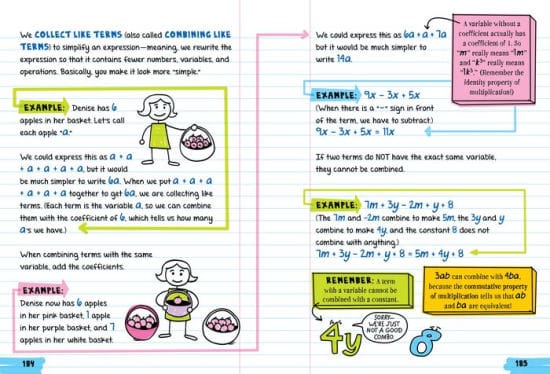 We COLLECT LIKE TERMS (also called COMBINING LIKE
TERMS) to simplify an expression—meaning, we rewrite the
expression so that it contains fewer numbers, variables, and
operations. Basically, you make it look more "simple."
EXAMPLE: Denise has 6
apples in her basket. Let's call
each apple "a."
We could express this as a + a
+ a + a + a + a, but it would
be much simpler to write 6a. When we put a + a + a
+ a + a + a together to get 6a, we are collecting like
terms. (Each term is the variable a, so we can combine
them with the coefficient of 6, which tells us how many
a's we have.)
When combining terms with the same
variable, add the coefficients.
EXAMPLE:
Denise now has 6 apples
in her pink basket, 1 apple
in her purple basket, and 7
apples in her white basket.
184
We could express this as 6a + a + 7a
but it would be much simpler to
write 14a.
A variable without a
coefficient actually has
a coefficient of 1. So
"m" really means "1m"
and "k³" really means
"1k³." (Remember the
identity property of
multiplication!)
EXAMPLE: 9x - 3x + 5x
(When there is a "-" sign in front
of the term, we have to subtract.)
9x - 3x + 5x = 11x
If two terms do NOT have the exact same variable,
they cannot be combined.
EXAMPLE: 7m + 3y - 2m + y + 8
(The 7m and -2m combine to make 5m, the 3y and y
combine to make 4y, and the constant 8 does not
combine with anything.)
7m + 3y - 2m + y + 8 = 5m + 4y + 8
REMEMBER: A term
with a variable cannot be
combined with a constant.
3ab can combine with 4ba,
because the commutative property
of multiplication tells us that ab
and ba are equivalent!
4y
SORRY—
WE'RE JUST
NOT A GOOD
COMBO.
8
185